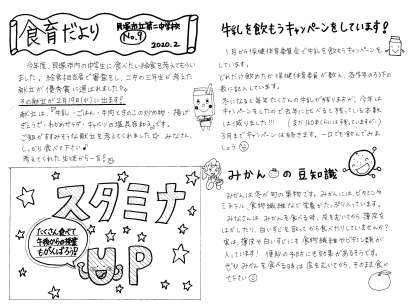 食育だより
貝塚市立第二中学校
No.9
2020.2
今年度、貝塚市内の中学生に食べたい給食を考えてもらい
ました。給食担当者で審査をし、二中の三年生が考えた
献立が優秀賞に選ばれました。
その献立が2月19日(水)に出ます!
献立は、「牛乳・ごはん・牛肉ときのこの炒め物・揚げ
ぎょうざ・わかめサラダ・キャベツの塩昆布和え」です。
ご飯がすすみそうな献立を考えてくれました☆みなさん、
しっかり食べて下さい
考えてくれた生徒から一言!
スタミナ
UP
たくさん食べて
午後からの授業
もがんばろう!
牛乳を飲もうキャンペーンをしています!
1月から保健体育委員会で牛乳を飲もうキャンペーンを
しています。
どれだけ飲めたか保健体育委員が数え、各学年のろう下の
表に記入しています。
冬になると毎年たくさんの牛乳が残りますが、今年は
キャンペーンをしたので去年に比べると残っている本数
は減りました!!
3月までキャンペーンは続きます。一口でも飲んでみましょ
う
みかんの豆知識
みかんは冬が旬の果物です。みかんには、ビタミンや
ミネラル、食物繊維など栄養がたっぷり入っています。
みなさんは、みかんを食べる時、皮をむいてから薄皮を
はがしたり、白いすじを取ってから食べたりしていませんか?
実は、薄皮や白いすじにも食物繊維やビタミン類が
入っています! 便秘の予防にも効果があるそうです。
ぜひみかんを食べる時は皮をむいてから、そのまま食べ
て下さい